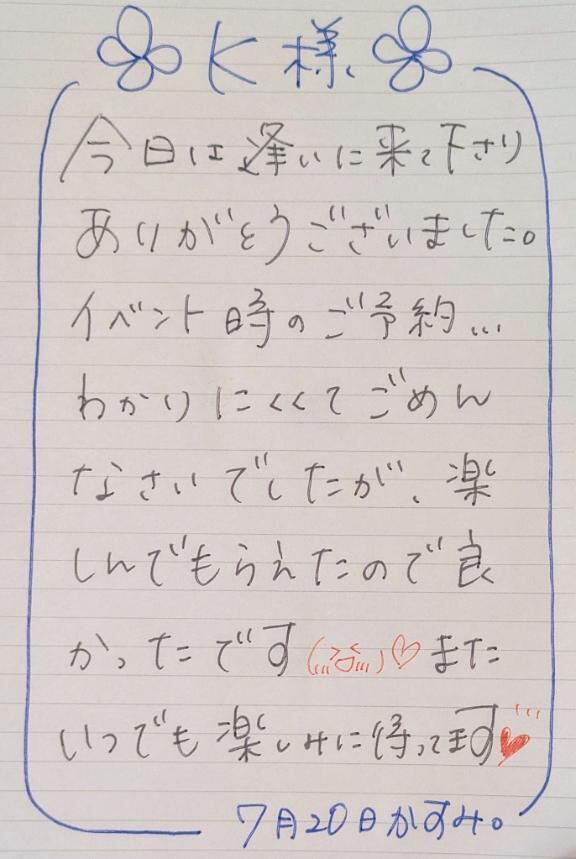 K様
今日は逢いに来て下さり
ありがとうございました。
イベント時のご予約...
わかりにくくてごめん
なさいでしたが、楽
しんでもらえたので良
かったです♡また
いつでも楽しみに待ってます♥
7月20日かすみ。